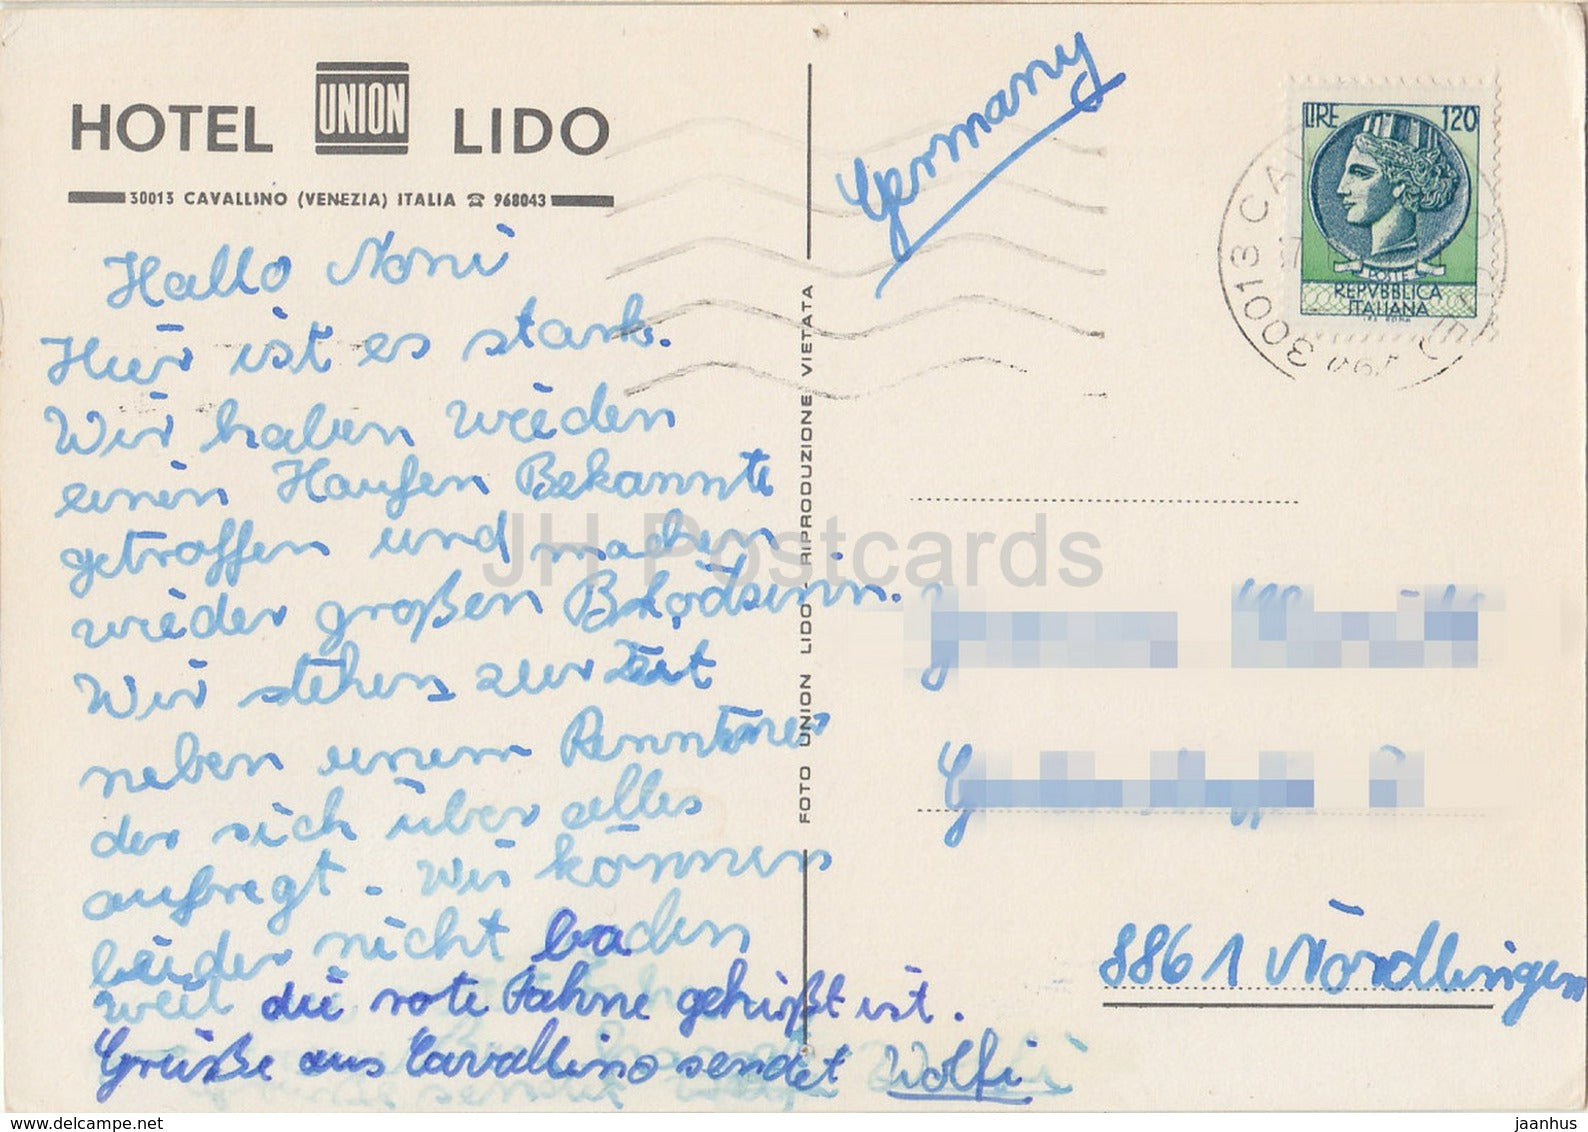 HOTEL UNION LIDO
30013 CAVALLINO (VENEZIA) ITALIA ☎ 968043
Hallo Noni
Hier ist es stark.
Wir haben wieder
einen Haufen Bekannte
getroffen und machen
wieder großen Blödsinn.
Wir stehen zur Zeit
neben einem
der sich über alles
aufregt. Wir können
leider nicht baden
weil die rote Fahne gehißt ist.
Grüße aus Cavallino sendet Wolfi
FOTO UNION LIDO - RIPRODUZIONE VIETATA
Germany
LIRE 120
POSTE
REPVBBLICA
ITALIANA
I.P.S. ROMA
30013 CA
8861 Nördlingen
JH Postcards
hipstamp.com/store/jaanhus
jaanhus